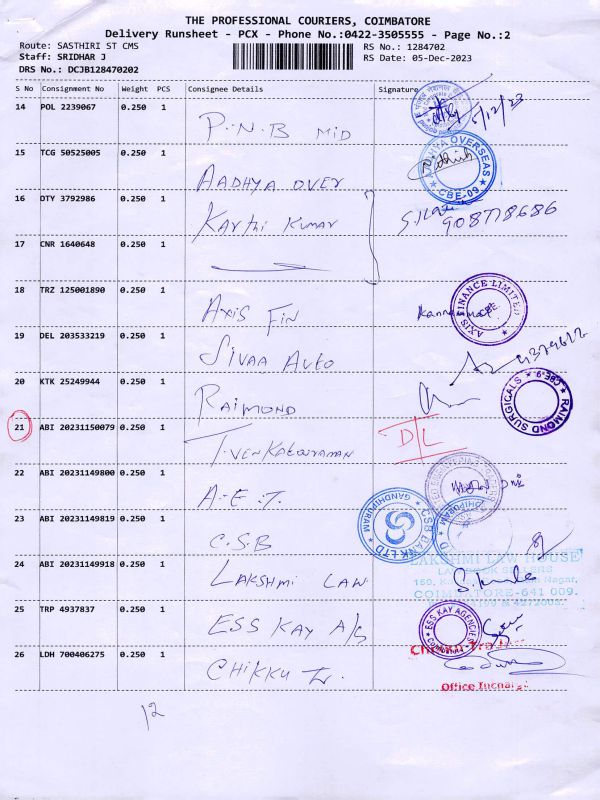 THE PROFESSIONAL COURIERS, COIMBATORE
Delivery Runsheet - PCX - Phone No.:0422-3505555 - Page No.:2
Route: SASTHIRI ST CMS
RS No.: 1284702
Staff: SRIDHAR J
RS Date: 05-Dec-2023
DRS No.: DCJB128470202
S No Consignment No Weight PCS Consignee Details Signature
14 POL 2239067 0.250 1
P.N.B MID
5/12/23
15 TCG 50525005 0.250 1
AADHYA OVER
AADHYA OVERSEAS
CBE-09
16 DTY 3792986 0.250 1
Karthi Kumar
17 CNR 1640648 0.250 1
18 TRZ 125001890 0.250 1
AXIS FIN
AXIS FINANCE LIMITED
19 DEL 203533219 0.250 1
SIVAA AUTO
20 KTK 25249944 0.250 1
RAIMOND
RAIMOND SURGICALS
CBE-9
21 ABI 20231150079 0.250 1
D/L
22 ABI 20231149800 0.250 1
A.E.T.
23 ABI 20231149819 0.250 1
C.S.B
CSB BANK LTD
GANDHIPURAM
24 ABI 20231149918 0.250 1
LAKSHMI LAW
LAKSHMI LAW HOUSE
LAW BOOK SELLERS
COIMBATORE-641 009.
25 TRP 4937837 0.250 1
ESS KAY A/S
ESS KAY AGENCIES
26 LDH 700406275 0.250 1
CHIKKU Tr.
Office Incharge
12